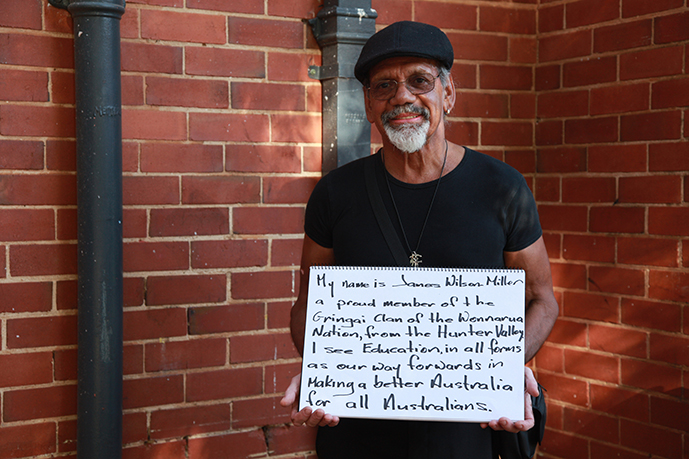 My name is James Wilson Miller
a proud member of the
Gringai Clan of the Wonnarua
Nation, from the Hunter Valley
I see Education, in all forms
as our way forwards in
Making a better Australia
for all Australians.